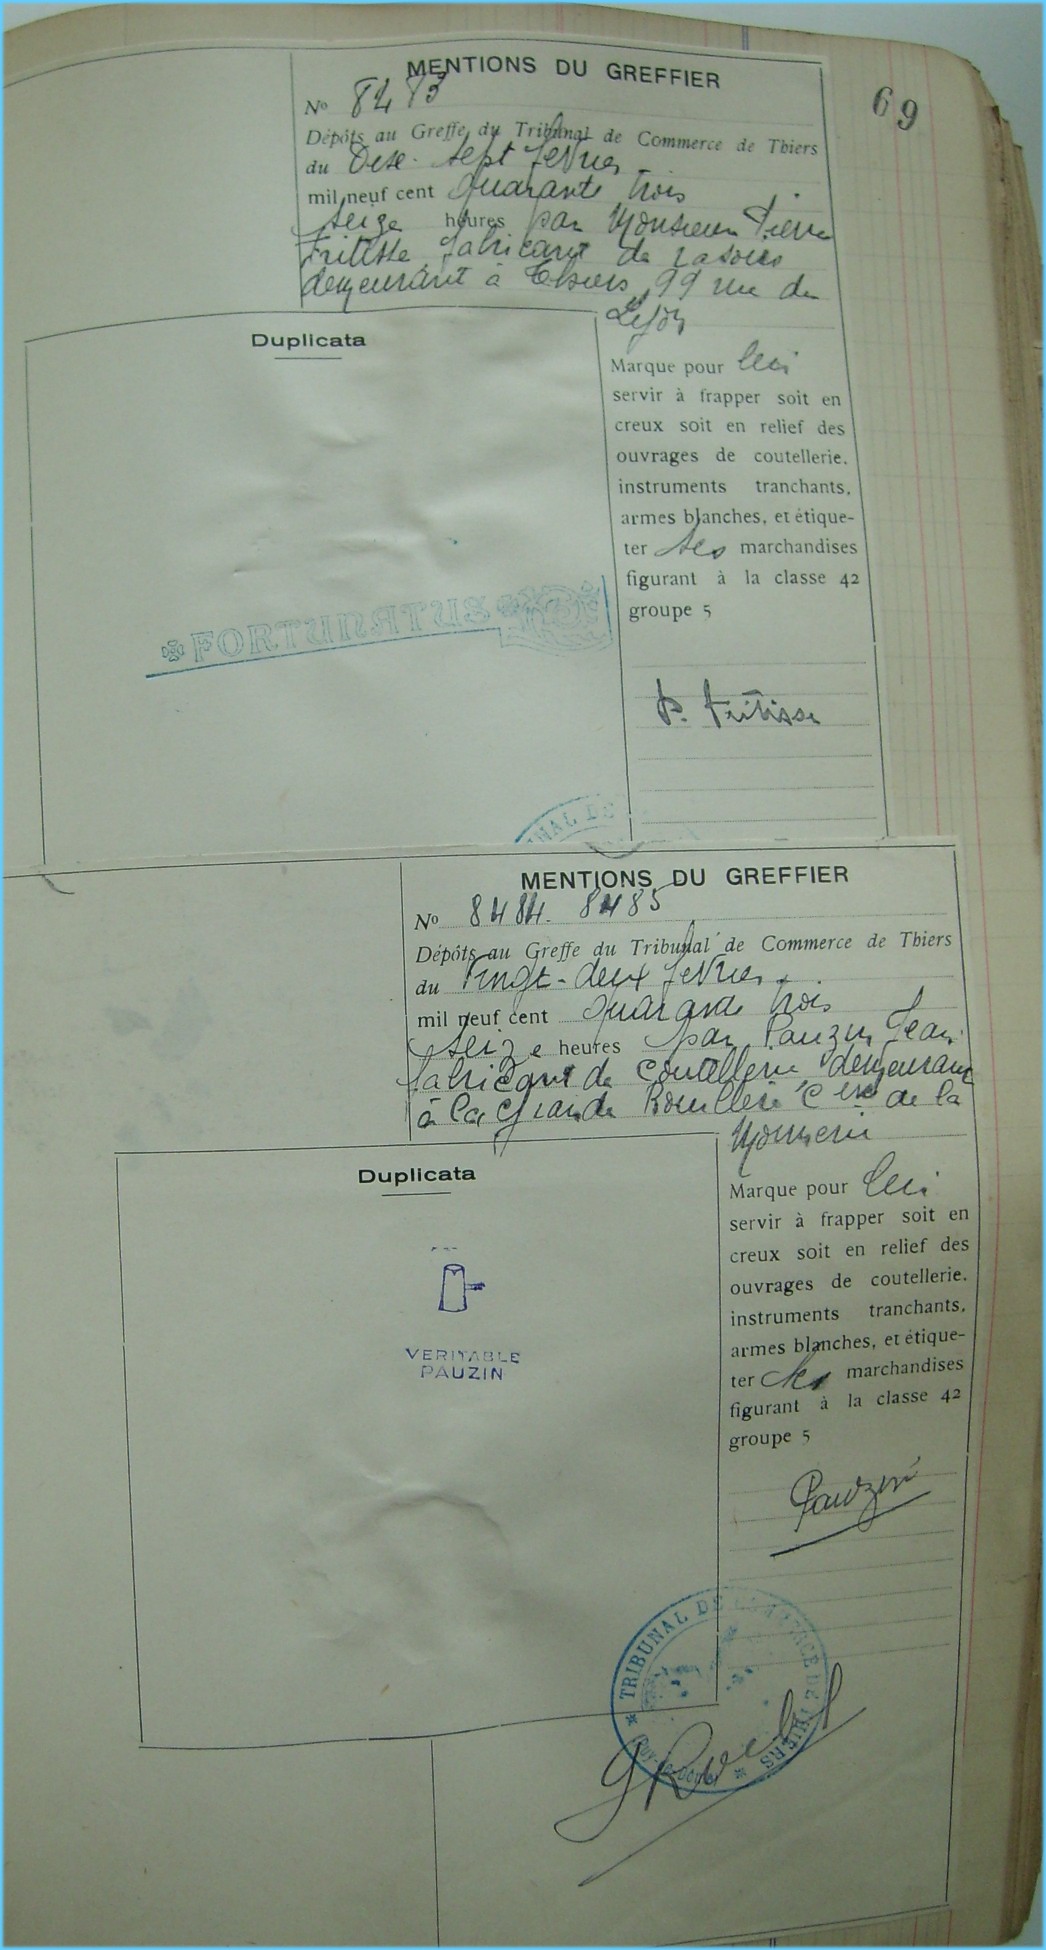 69
MENTIONS DU GREFFIER
No 8483
Dépôts au Greffe du Tribunal de Commerce de Thiers
du Dix-sept février
mil neuf cent quarante trois
seize heures par Monsieur Pierre
Fritisse fabricant de rasoirs
demeurant à Thiers 99 rue de
Lyon
Duplicata
Marque pour lui
servir à frapper soit en
creux soit en relief des
ouvrages de coutellerie,
instruments tranchants,
armes blanches, et étique-
ter ses marchandises
figurant à la classe 42
groupe 5
FORTUNATUS
P. Fritisse
NAL DE
MENTIONS DU GREFFIER
No 8484. 8485
Dépôts au Greffe du Tribunal de Commerce de Thiers
du Vingt-deux février
mil neuf cent quarante trois
seize heures par Pauzin Jean
fabricant de coutellerie demeurant
à la Grande Rouillère Cne de la
Monnerie
Duplicata
VERITABLE
PAUZIN
Marque pour lui
servir à frapper soit en
creux soit en relief des
ouvrages de coutellerie,
instruments tranchants,
armes blanches, et étique-
ter ses marchandises
figurant à la classe 42
groupe 5
Pauzin
TRIBUNAL DE COMMERCE DE THIERS
(PUY-DE-DOME)